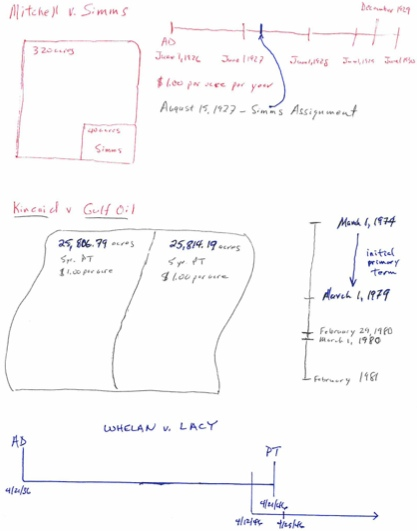 Mitchell v. Simms
December 1929
320 acres
AD
June 1, 1926
June 1, 1927
June 1, 1928
June 1, 1929
June 1, 1930
$1.00 per acre per year
August 15, 1927 – Simms Assignment
40 acres
Simms
Kincaid v Gulf Oil
25,806.79 acres
5 yr. PT
$1.00 per acre
25,819.19 acres
5 yr PT
$1.00 per acre
March 1, 1974
initial
primary
term
March 1, 1979
February 29, 1980
March 1, 1980
February 1981
WHELAN v. LACY
AD
PT
4/21/36
4/21/46
4/12/46